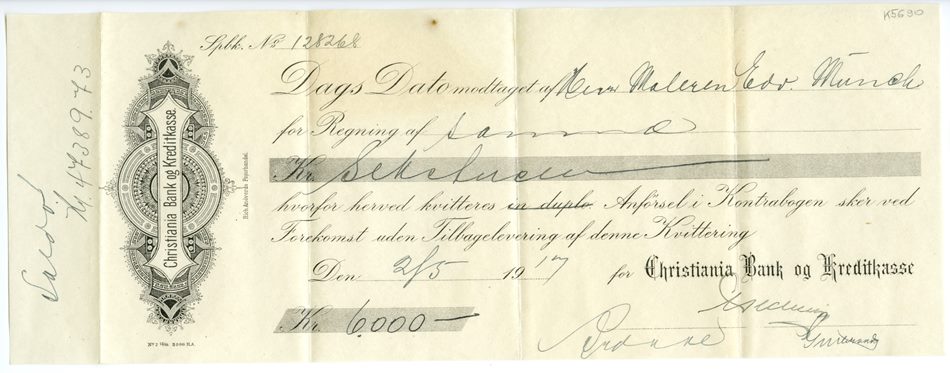 K5690
Spbk. No 128268
Dags Dato modtaget af Herr Maleren Edv. Munch
for Regning af samme
Kr. Sekstusen
hvorfor herved kvitteres in duplo. Anførsel i Kontrabogen sker ved
Forekomst uden Tilbagelevering af denne Kvittering
Den 2/5 1917 for Christiania Bank og Kreditkasse
Kr. 6000—
Christiania Bank og Kreditkasse
Saldo
Kr. 47389.73